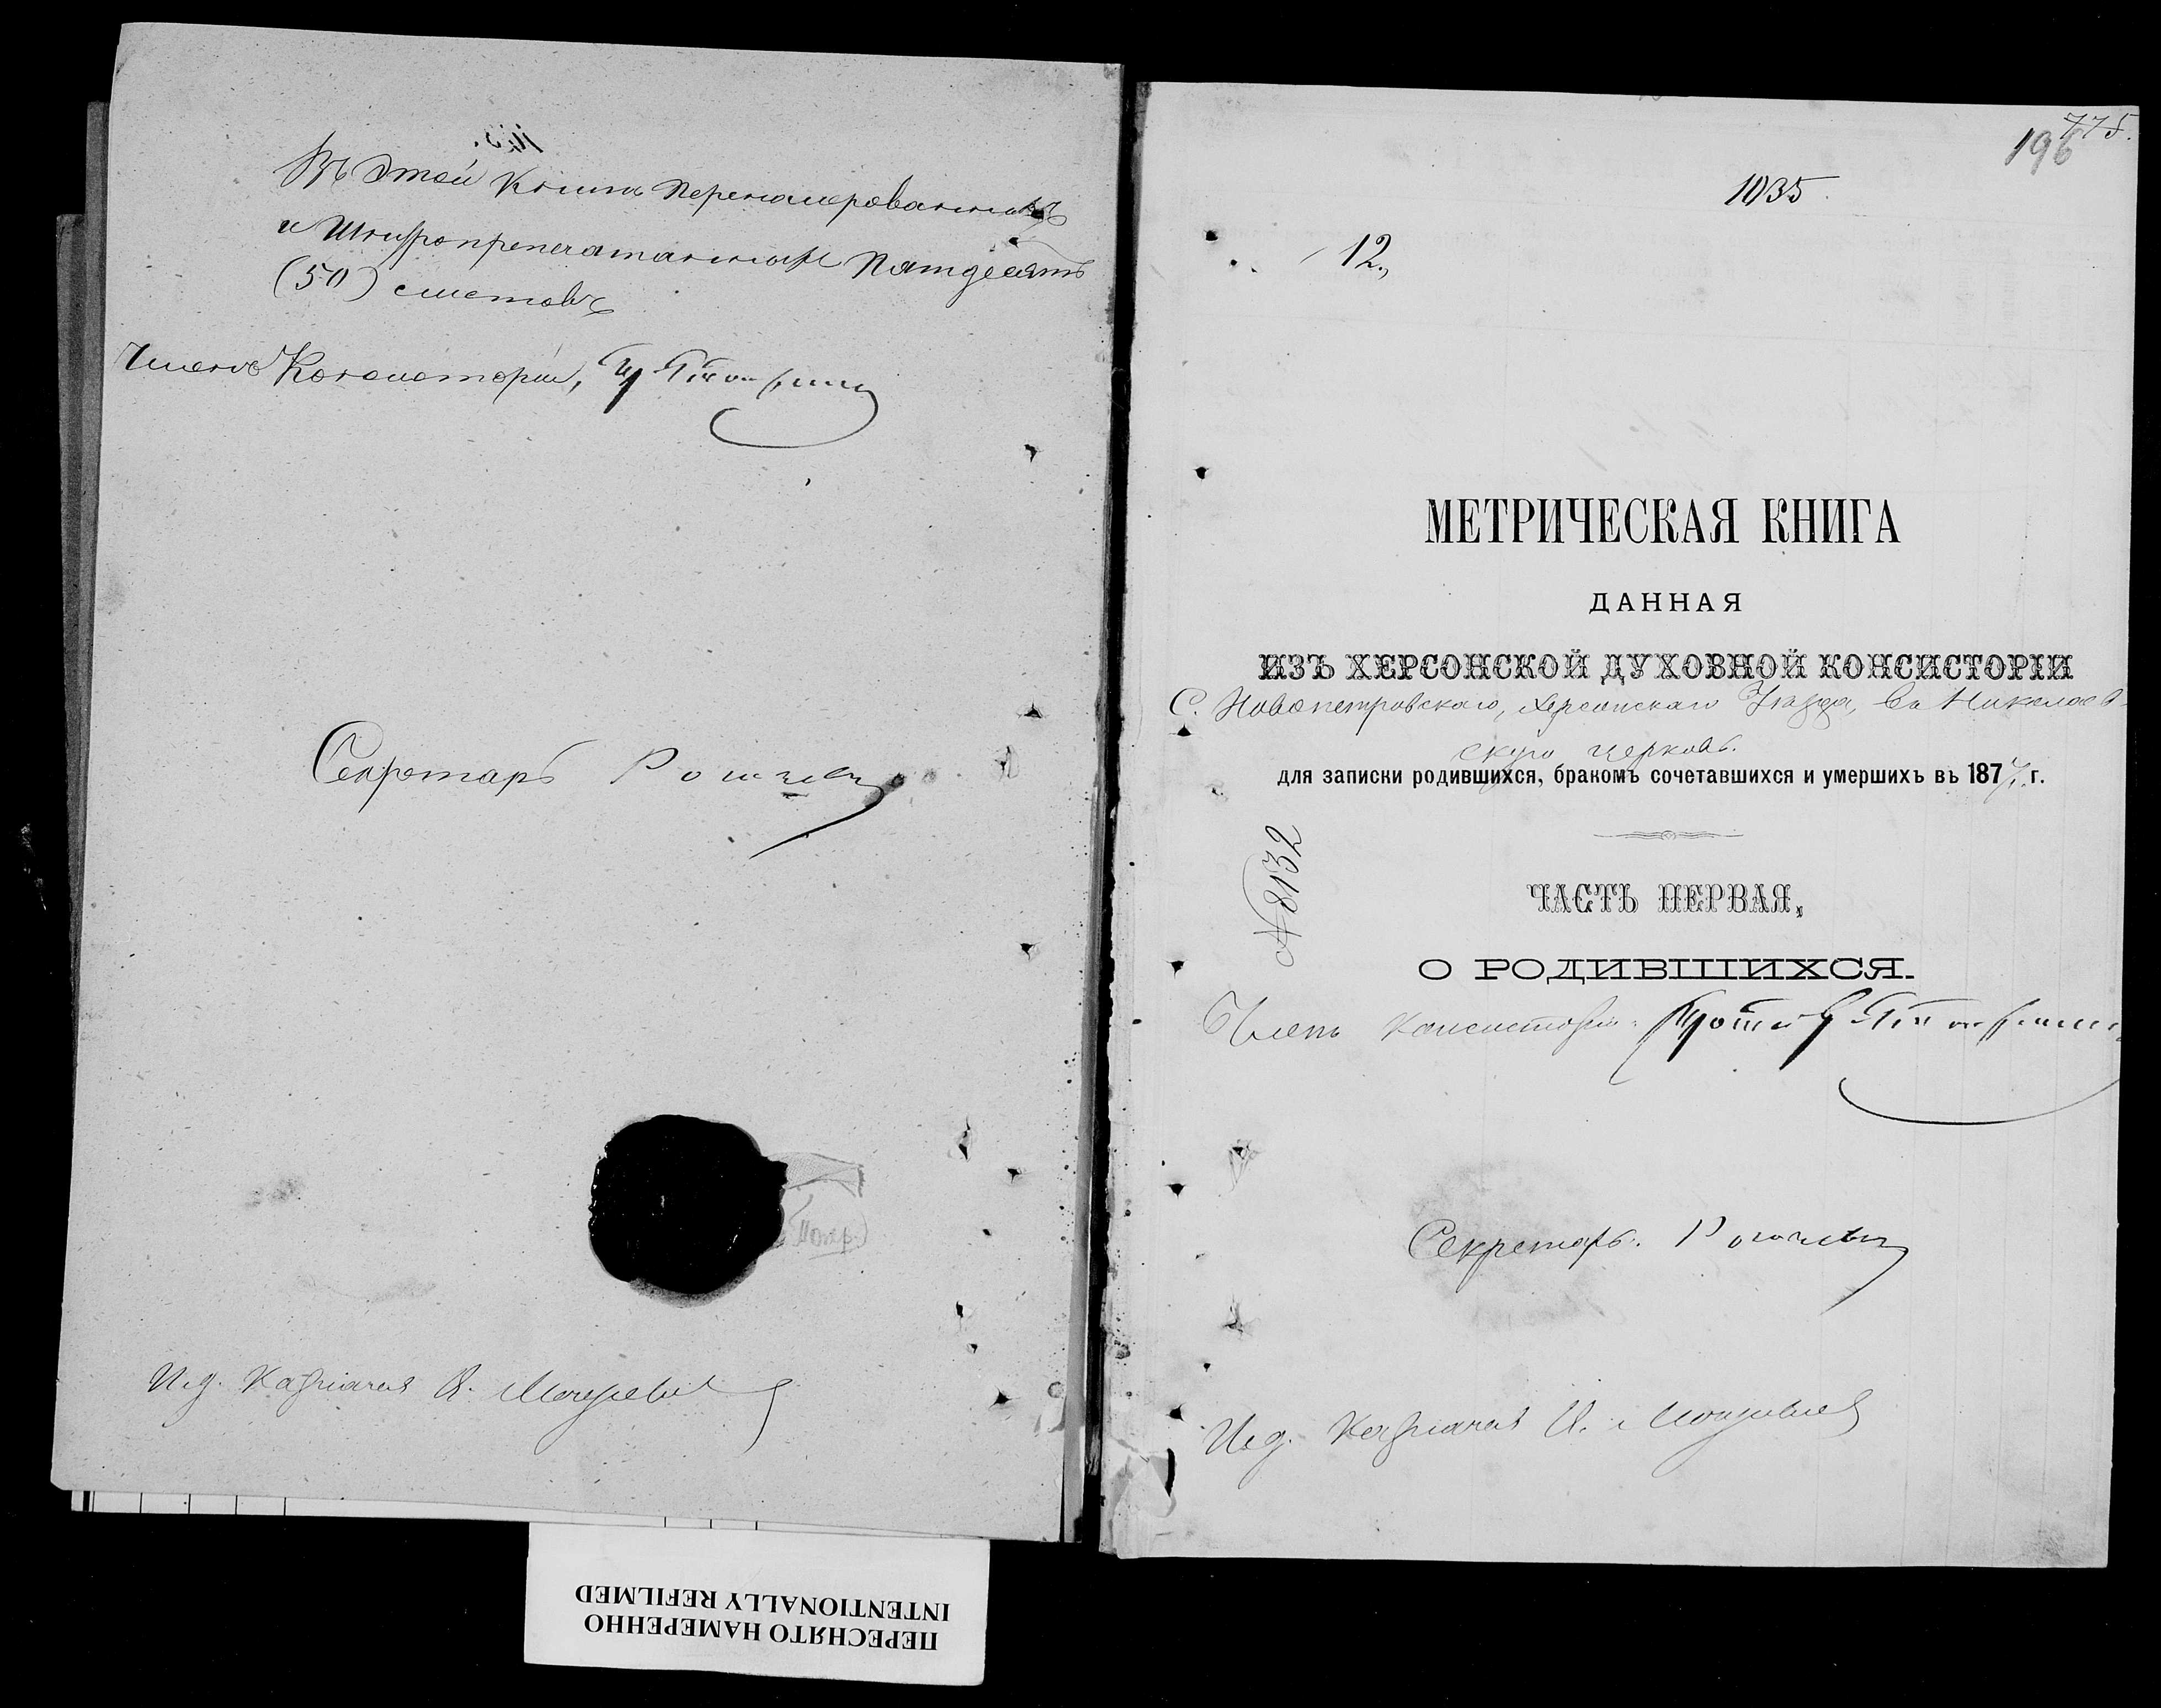 Въ этой книгѣ перенумерованныхъ
и шнуропрепечатанныхъ пятдесятъ
(50) листовъ
Членъ Консисторіи,
Секретарь
И.д. Казначея
775.
196
1035.
12.,
МЕТРИЧЕСКАЯ КНИГА
ДАННАЯ
ИЗЪ ХЕРСОНСКОЙ ДУХОВНОЙ КОНСИСТОРІИ
С. Новопетровскаго, Херсонскаго Уѣзда, въ Николаев-
скую церковь.
для записки родившихся, бракомъ сочетавшихся и умершихъ въ 187 г.
№ 8132
ЧАСТЬ ПЕРВАЯ,
О РОДИВШИХСЯ.
Членъ Консисторіи
Секретарь.
И.д. Казначея
ПЕРЕСНЯТО НАМЕРЕННО
INTENTIONALLY REFILMED